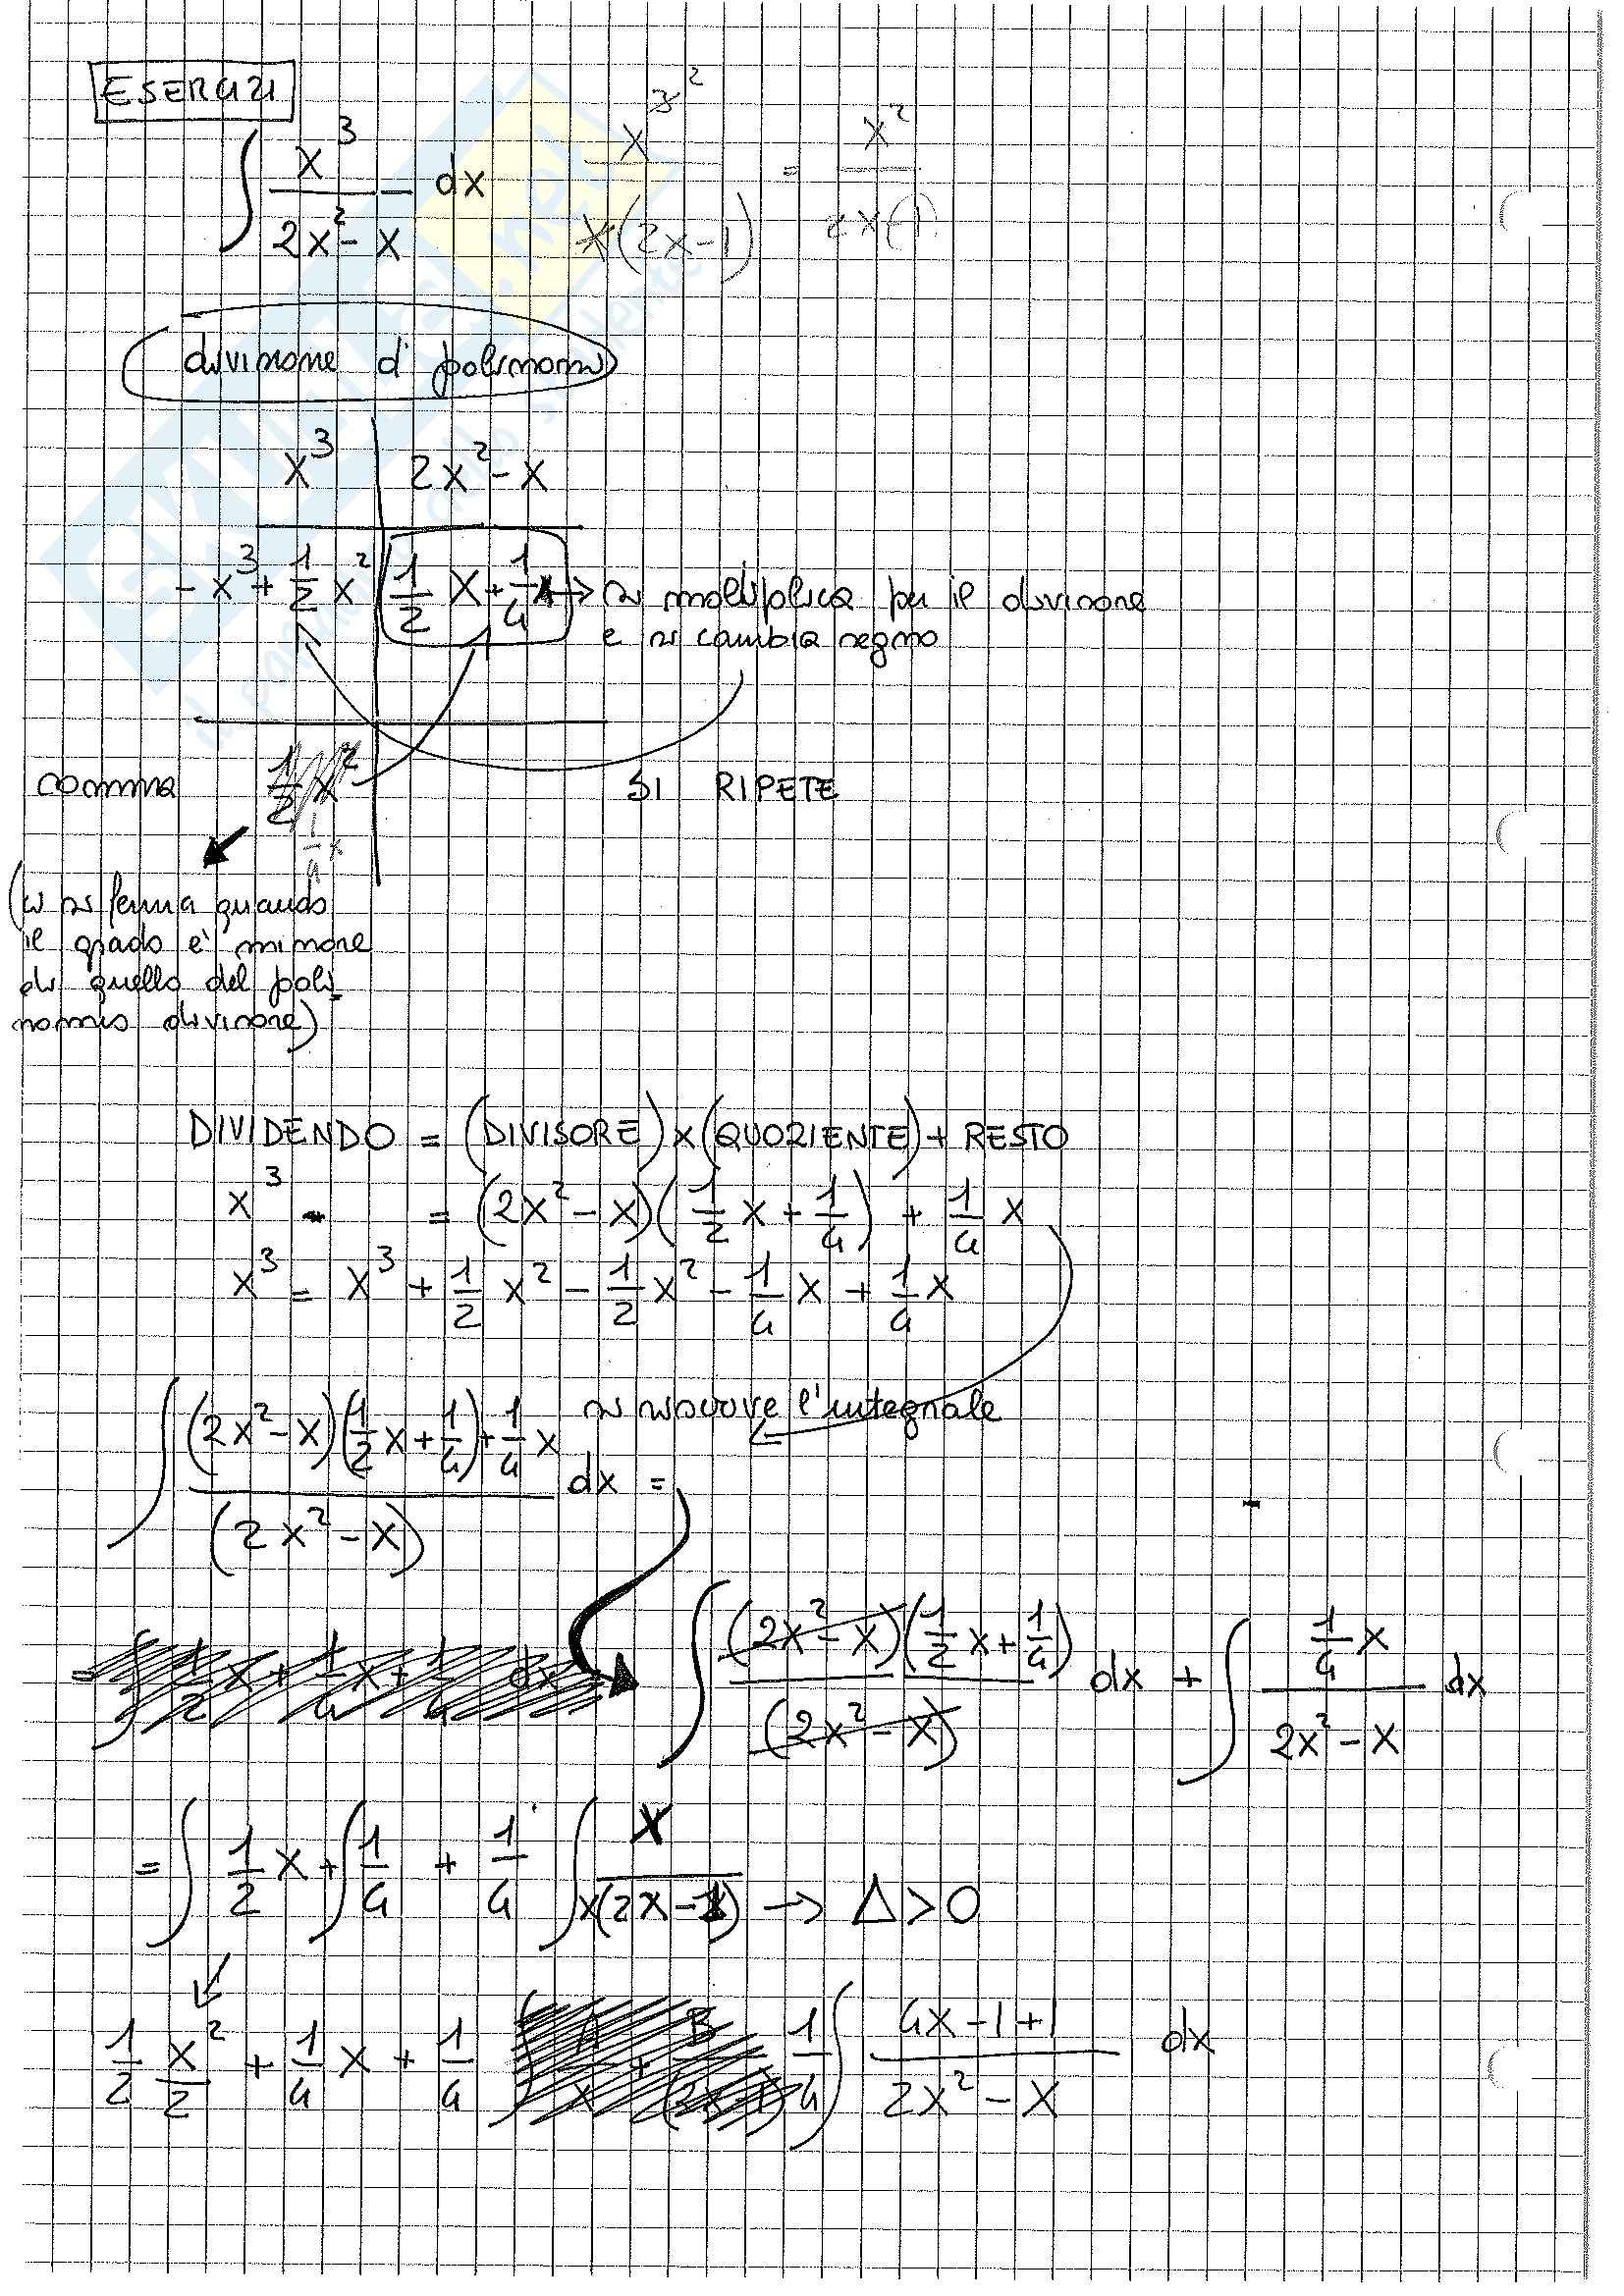 ESERCIZI
∫ x³ / (2x² - x) dx    x³ / x(2x-1) = x² / 2x-1
divisione di polinomi
x³ | 2x² - x
-x³ + 1/2 x² | 1/2 x + 1/4 → si moltiplica per il divisore
e si cambia segno
somma 1/2 x² SI RIPETE
1/4 x
(ci si ferma quando
il grado è minore
di quello del poli
nomio divisore)
DIVIDENDO = (DIVISORE) x (QUOZIENTE) + RESTO
x³ = (2x² - x)(1/2 x + 1/4) + 1/4 x
x³ = x³ + 1/2 x² - 1/2 x² - 1/4 x + 1/4 x
si riscrive l'integrale
∫ (2x² - x)(1/2 x + 1/4) + 1/4 x / (2x² - x) dx =
∫ (2x² - x)(1/2 x + 1/4) / (2x² - x) dx + ∫ 1/4 x / 2x² - x dx
= ∫ 1/2 x + ∫ 1/4 + 1/4 ∫ x / x(2x-1) → Δ > 0
1/2 x²/2 + 1/4 x + 1/4 1/4 ∫ 4x - 1 + 1 / 2x² - x dx